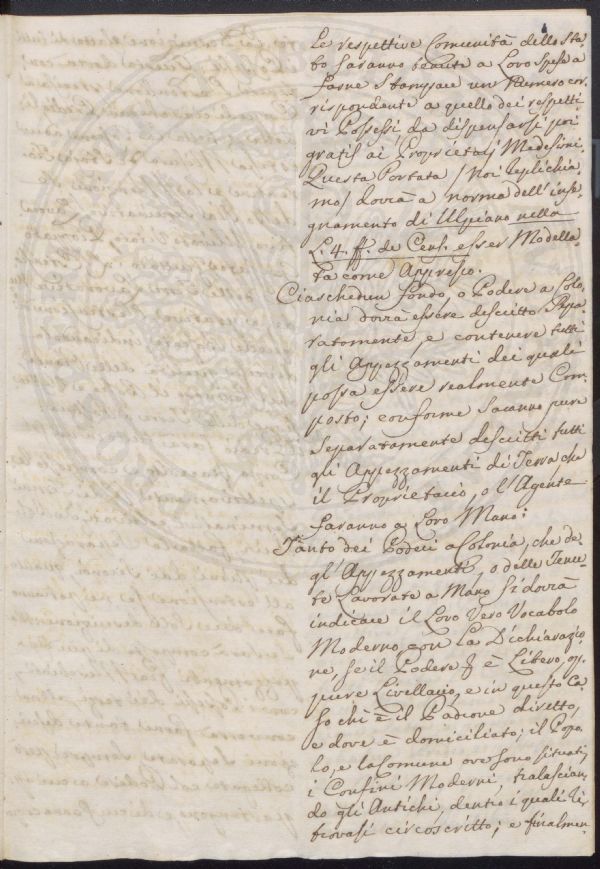 Le respettive Comunità dello Sta-
to saranno tenute a Loro Spese a
farne Stampare un Numero cor-
rispondente a quello dei respetti-
vi Possessi da dispensarsi poi
gratis ai Proprietarj Medesimi.
Questa Portata /Noi replichia-
mo/ dovrà a norma dell'inse-
gnamento di Ulpiano nella
L. 4. ff. de Cens. esser Modella-
ta come Appresso.
Ciaschedun fondo, o Podere a Colo-
nia dovrà essere descritto Sepa-
ratamente, e contenere tutti
gli Appezzamenti dei quali
possa essere realmente Com-
posto; conforme saranno pure
separatamente descritti tutti
gli Appezzamenti di Terra che
il Proprietario, o l'Agente
faranno a Loro Mano:
Tanto dei Poderi a Colonia, che de-
gl'Appezzamenti, o delle Tenu-
te Lavorate a Mano si dovrà
indicare il Loro Vero Vocabolo
Moderno, con La Dichiarazio-
ne, se il Podere è Libero, op-
pure Livellario, e in questo Ca-
so chi è il Padrone diretto,
e dove è domiciliato; il Popo-
lo, e la Comune ove sono situati,
i Confini Moderni, tralascian-
do gli Antichi, dentro i quali ri-
trovasi circoscritto; e finalmen-